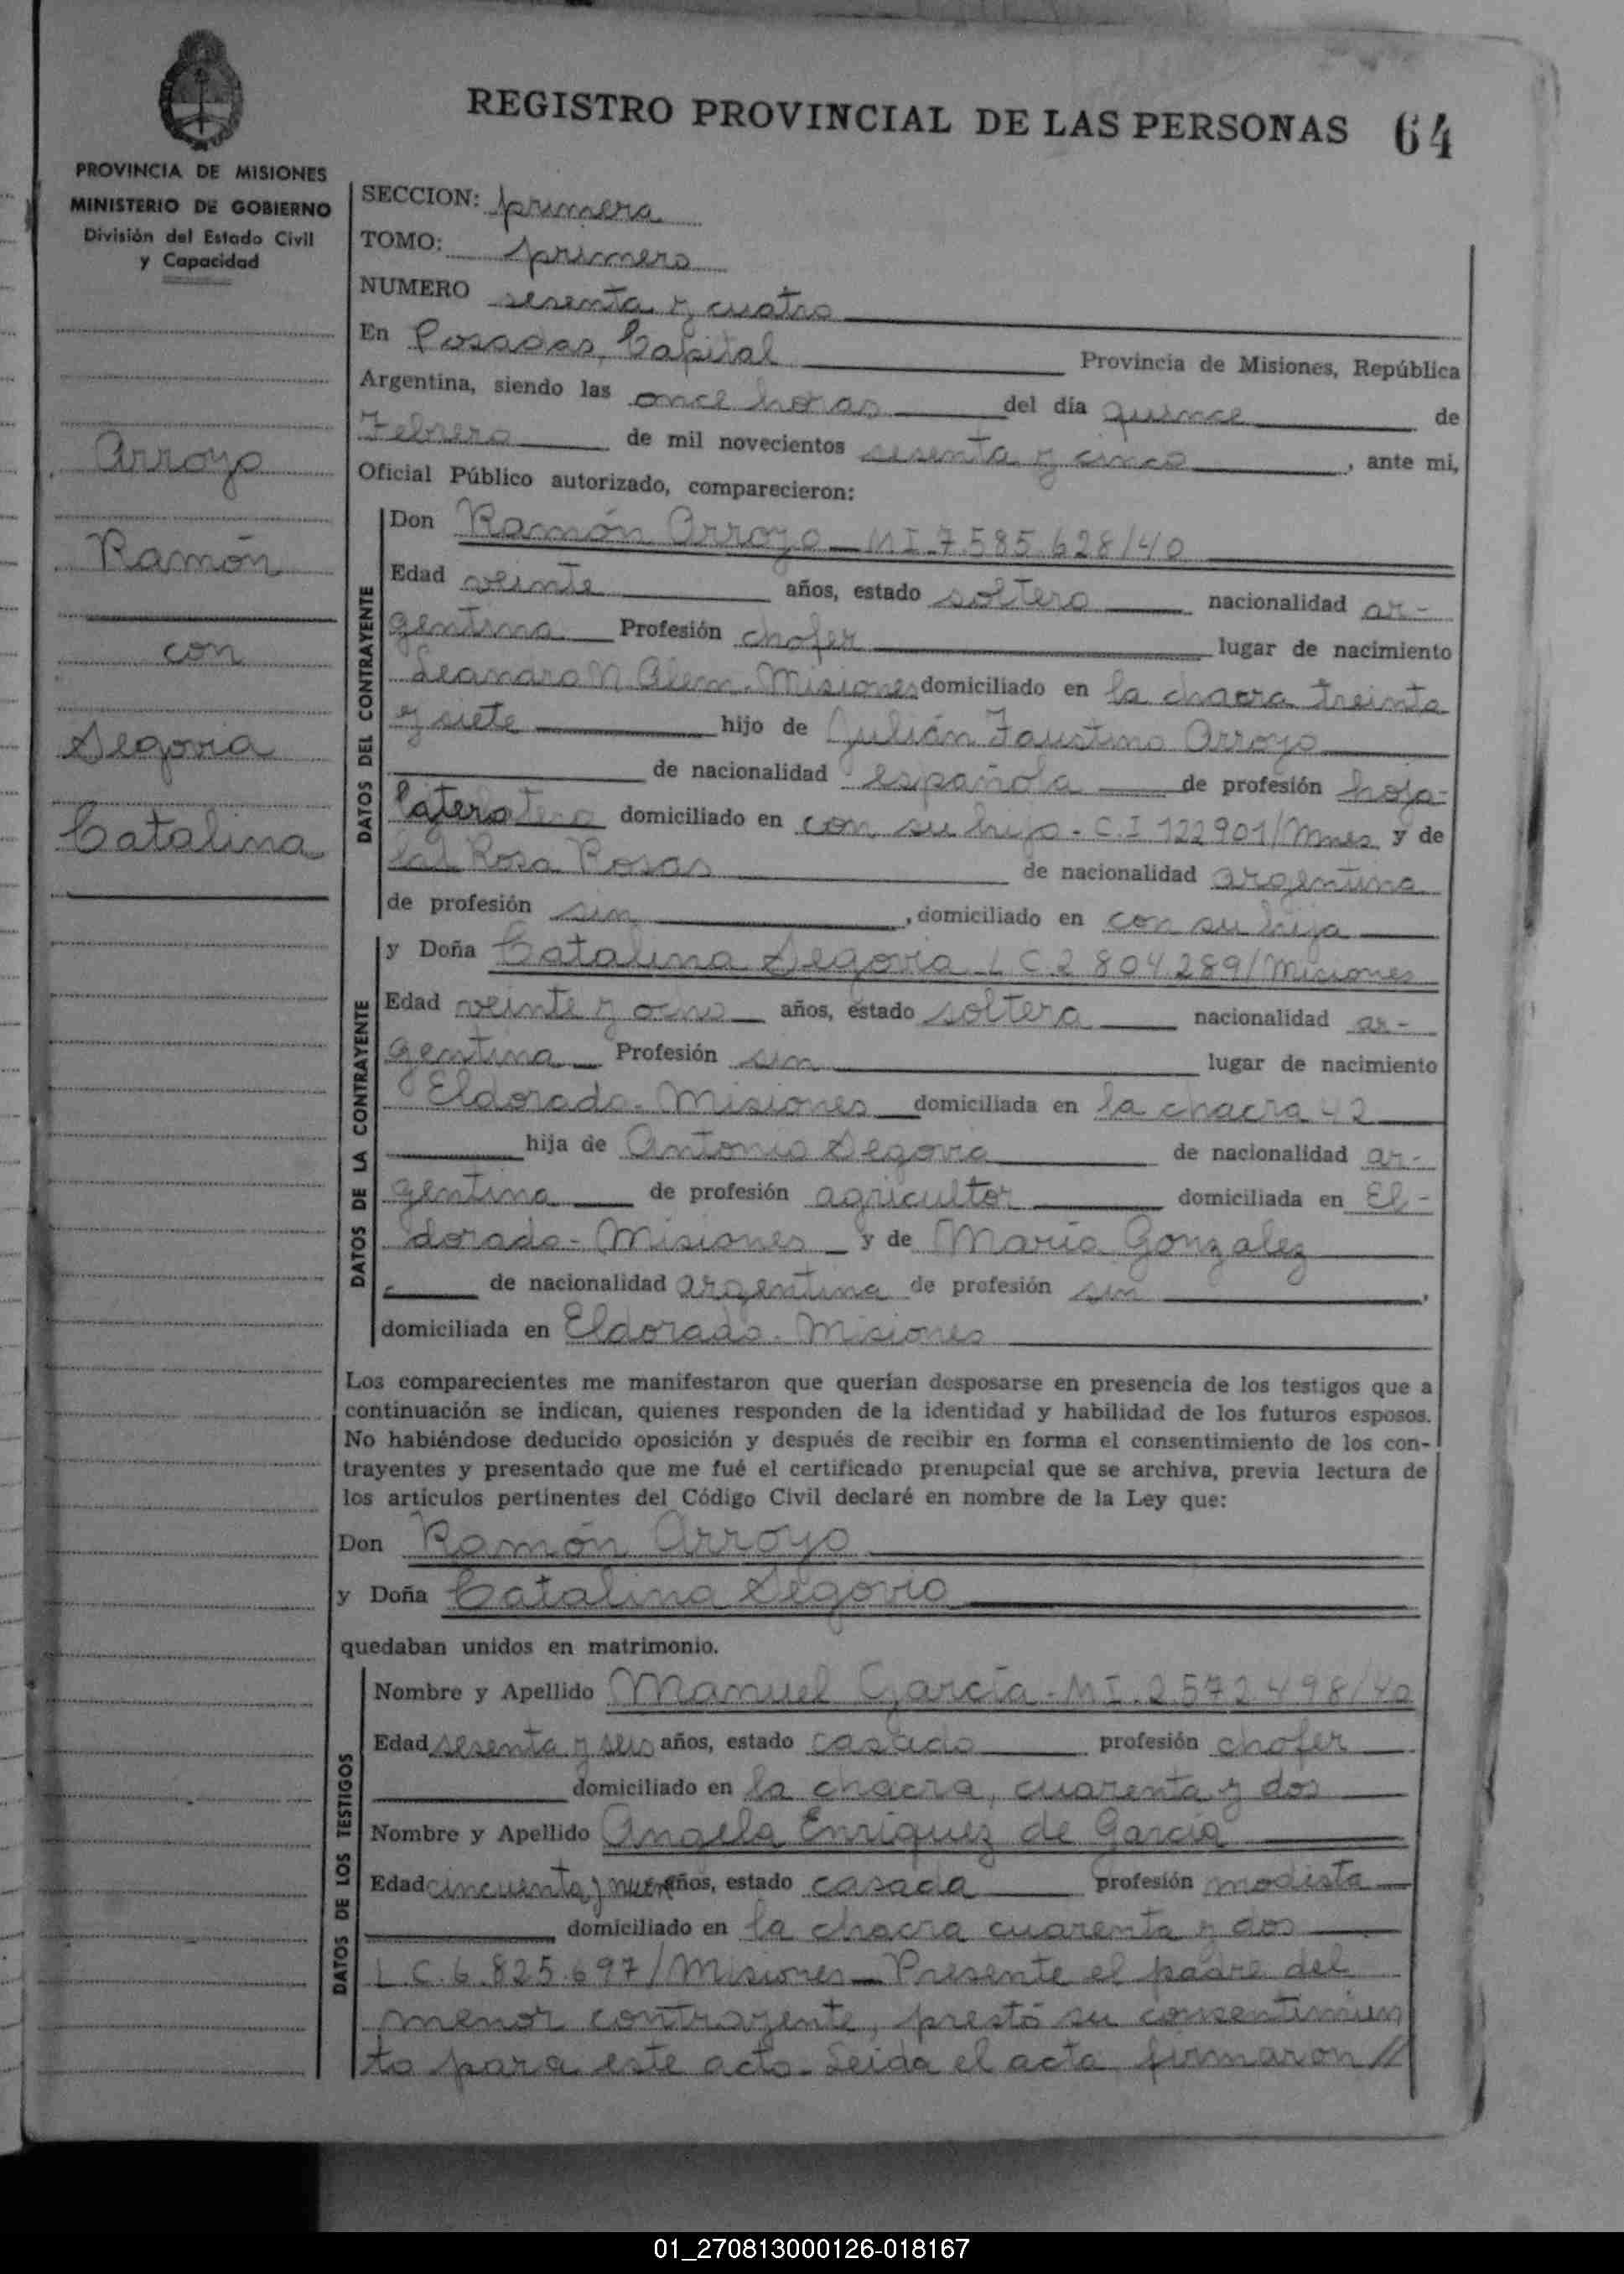 REGISTRO PROVINCIAL DE LAS PERSONAS 64
PROVINCIA DE MISIONES
MINISTERIO DE GOBIERNO
División del Estado Civil
y Capacidad
Arroyo
Ramón
con
Segovia
Catalina
SECCION: primera
TOMO: primero
NUMERO sesenta y cuatro
En Posadas, Capital Provincia de Misiones, República
Argentina, siendo las once horas del día quince de
Febrero de mil novecientos sesenta y cinco, ante mi,
Oficial Público autorizado, comparecieron:
DATOS DEL CONTRAYENTE
Don Ramón Arroyo - MI 7.585.628/40
Edad veinte años, estado soltero nacionalidad ar-
gentina Profesión chofer lugar de nacimiento
Leandro N. Alem. Misiones domiciliado en la chacra treinta
y siete hijo de Julián Faustino Arroyo
de nacionalidad española de profesión hoja-
latero domiciliado en con su hijo - C.I 122901/Mnes y de
Rosa Rosas de nacionalidad argentina
de profesión sin, domiciliado en con su hija
DATOS DE LA CONTRAYENTE
y Doña Catalina Segovia L C 2 804 289/Misiones
Edad veinte y ocho años, estado soltera nacionalidad ar-
gentina Profesión sin lugar de nacimiento
Eldorado - Misiones domiciliada en la chacra 42
hija de Antonio Segovia de nacionalidad ar-
gentina de profesión agricultor domiciliada en El-
dorado - Misiones y de María Gonzalez
de nacionalidad argentina de profesión sin,
domiciliada en Eldorado. Misiones
Los comparecientes me manifestaron que querían desposarse en presencia de los testigos que a
continuación se indican, quienes responden de la identidad y habilidad de los futuros esposos.
No habiéndose deducido oposición y después de recibir en forma el consentimiento de los con-
trayentes y presentado que me fué el certificado prenupcial que se archiva, previa lectura de
los artículos pertinentes del Código Civil declaré en nombre de la Ley que:
Don Ramón Arroyo
y Doña Catalina Segovia
quedaban unidos en matrimonio.
DATOS DE LOS TESTIGOS
Nombre y Apellido Manuel García - MI. 2.572.498/40
Edad sesenta y seis años, estado casado profesión chofer
domiciliado en la chacra, cuarenta y dos
Nombre y Apellido Angela Enriquez de García
Edad cincuenta y nueve años, estado casada profesión modista
domiciliado en la chacra cuarenta y dos
L.C. 6.825.697/Misiones - Presente el padre del
menor contrayente, prestó su consentimien
to para este acto - Leida el acta firmaron //
01_270813000126-018167